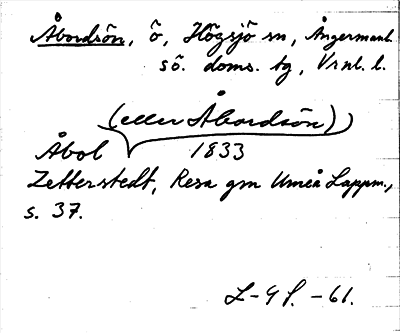 Åbordsön, ö, Högsjö sn, Ångermanl.
sö. doms. tg, Vrnl. l.
(eller Åbordsön)
Åbol 1833
Zetterstedt, Resa gm Umeå Lappm.,
s. 37.
L-g f. -61.